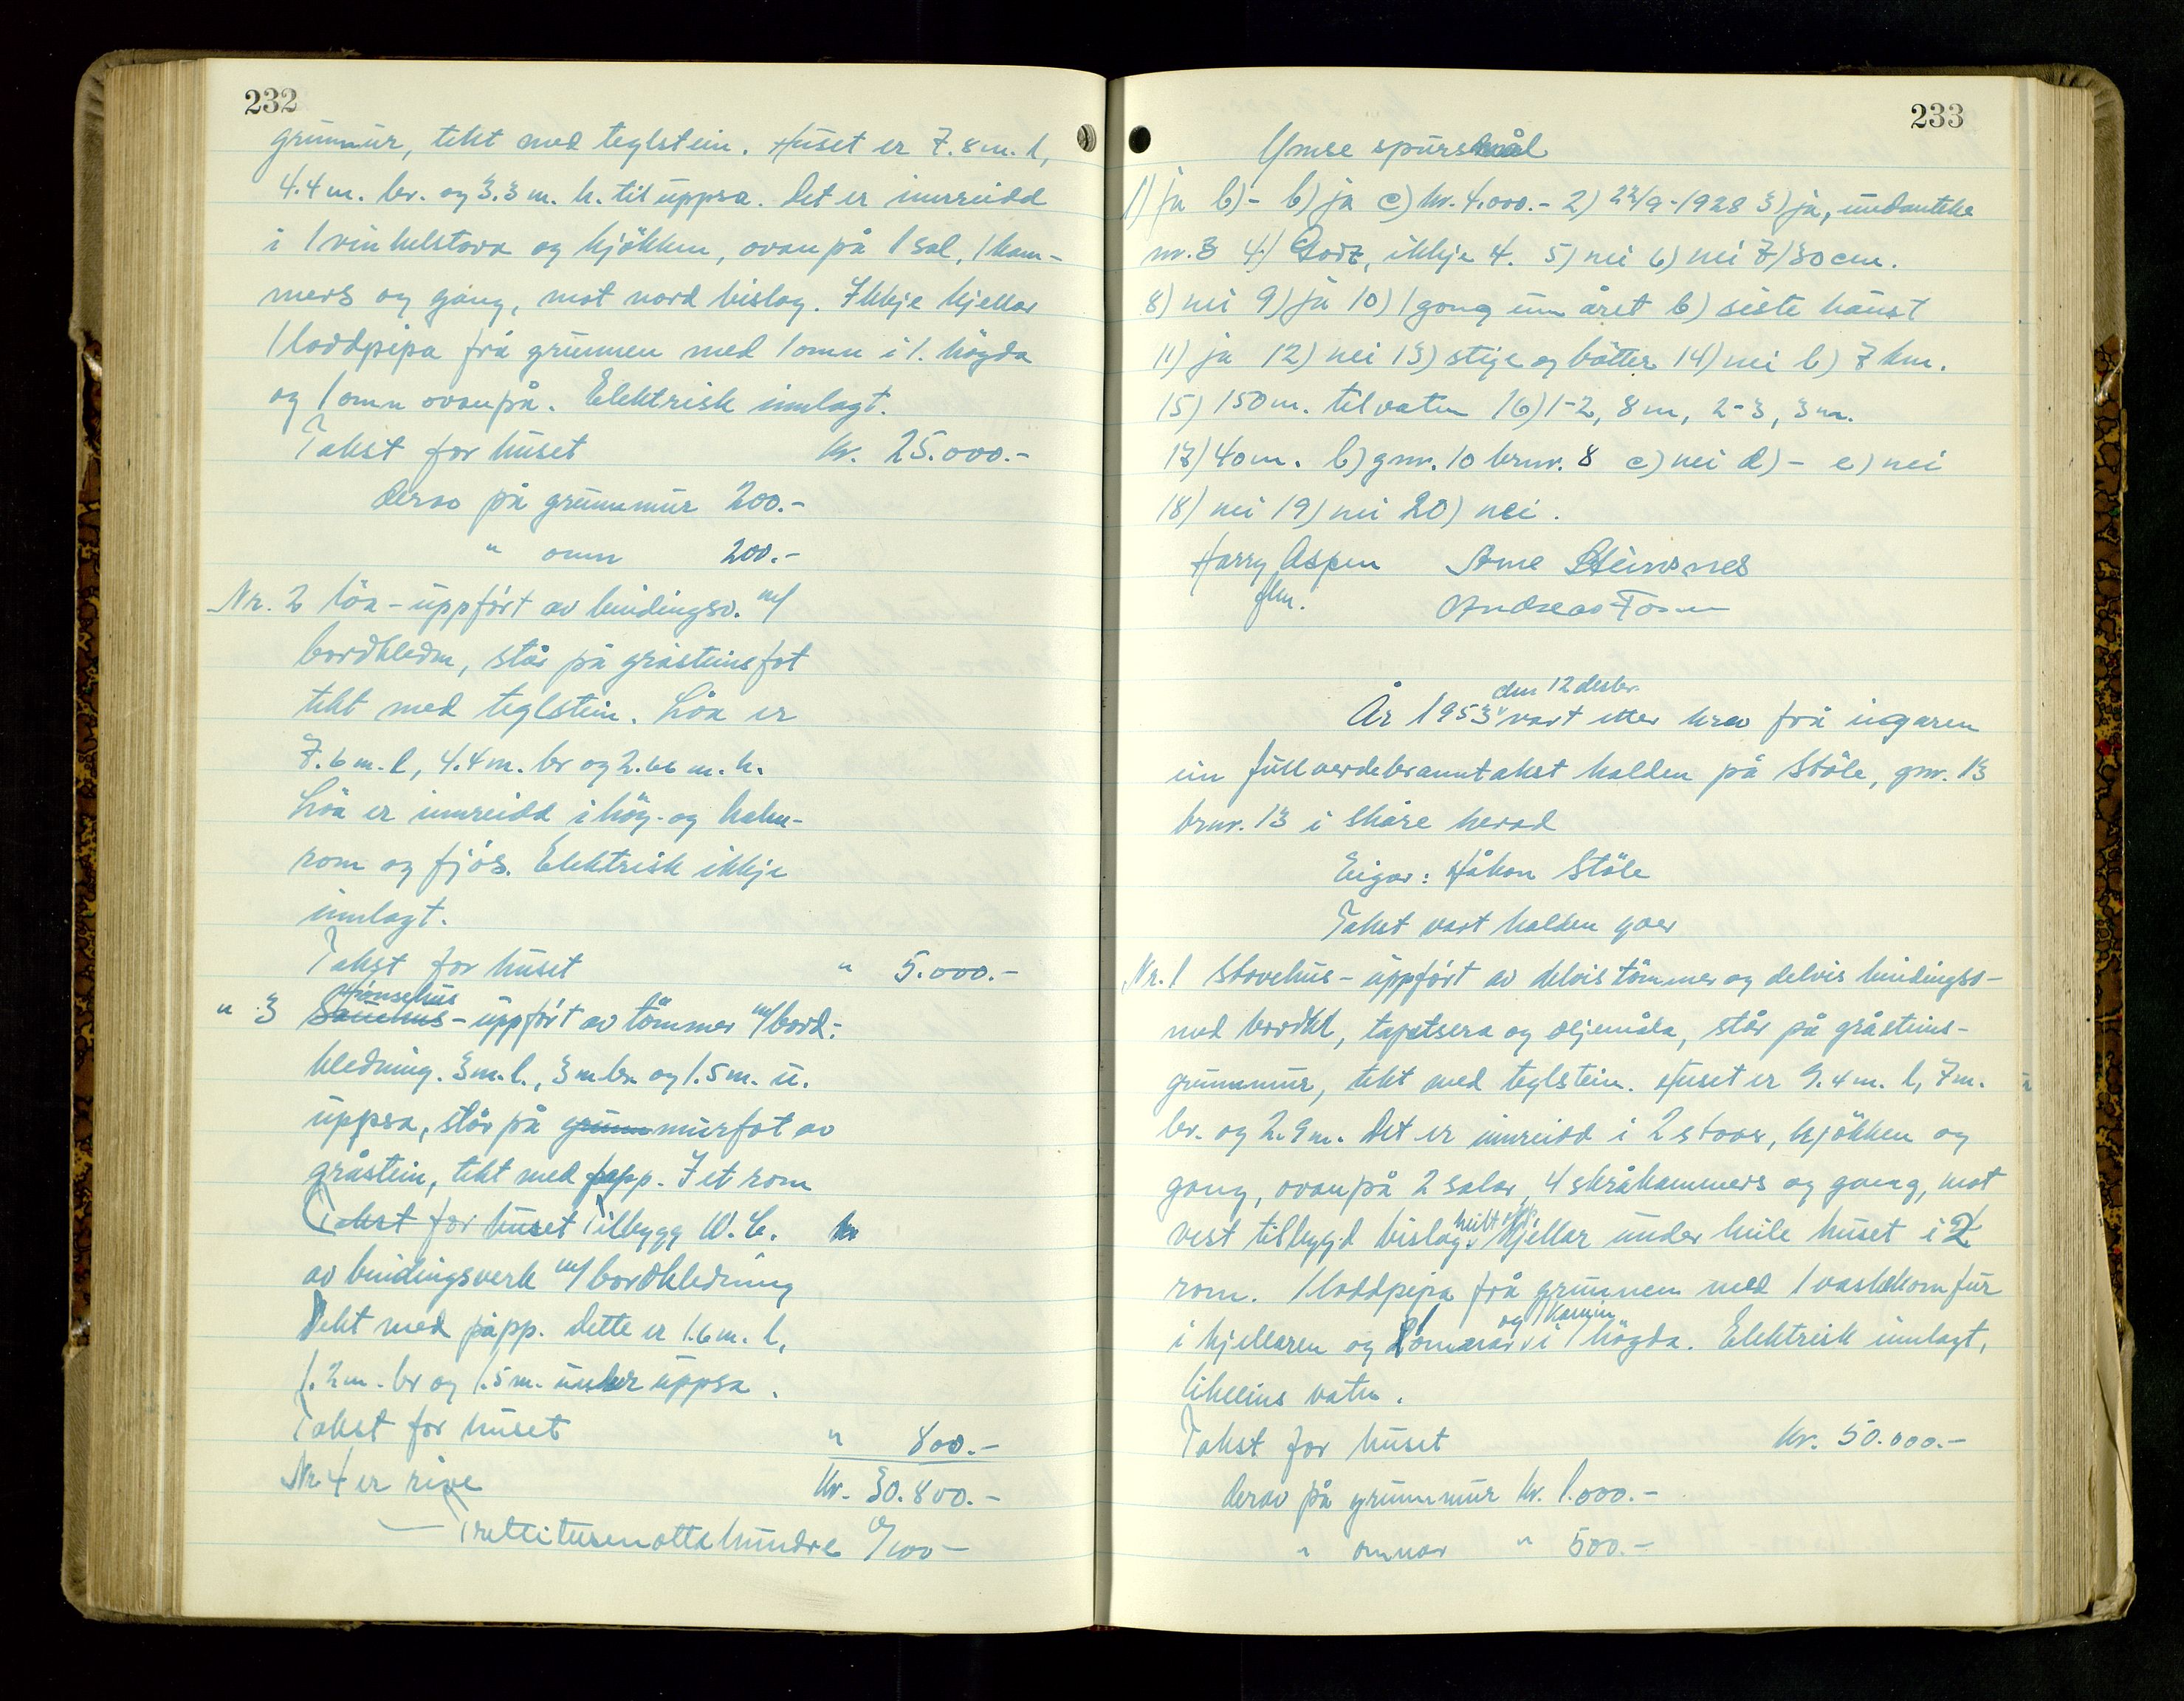 232
grunmur, tekt med teglstein. Huset er 7.8 m. l,
4.4 m. br. og 3.3 m. h. til uppsa. Det er innreidd
i 1 vinkelstova og kjökken, ovanpå 1 sal, 1 kam-
mers og gang, mot nord bislag. Ikkje kjellar
1 loddpipa frå grunnen med 1 omn i 1. högda
og 1 omn ovanpå. Elektrisk innlagt.
Takst for huset kr. 25.000.-
derav på grunnmur 200.-
" omn 200.-
Nr. 2 löa - uppfört av bindingsv. m/
bordkledn, står på gråsteinsfot
tekt med teglstein. Löa er
7.6 m. l, 4.4 m. br og 2.66 m. h.
Löa er innreidd i höy- og halm-
rom og fjös. Elektrisk ikkje
innlagt.
Takst for huset " 5.000.-
Hönsehus
" 3 Sauehus - uppfört av tömmer m/bord-
kledning. 3 m. l., 3 m br. og 1.5 m. u.
uppsa, står på grunnmurfot av
gråstein, tekt med papp. I et rom
Takst for huset Tilbygg W.C. kr
av bindingsverk m/bordkledning
Tekt med papp. Dette er 1.6 m. l,
1.2 m. br og 1.5 m. under uppsa.
Takst for huset " 800.-
Nr 4 er rive kr. 30.800.-
— Trettitusenottahundre 0/100 -
233
Ymse spursmål
1) ja b) - b) ja c) kr. 4.000.- 2) 22/9-1928 3) ja, undanteke
nr. 3 4) Godt, ikkje 4. 5) nei 6) nei 7) 30 cm.
8) nei 9) ja 10) 1 gong um året b) siste haust
11) ja 12) nei 13) stige og bötter 14) nei b) 7 km.
15) 150 m. til vatn 16) 1-2, 8 m, 2-3, 3 m.
17) 40 m. b) gnr. 10 brnr. 8 c) nei d) - e) nei
18) nei 19) nei 20) nei.
Harry Aspen Arne Steinsnes
flm. Andreas
den 12 desbr.
År 1953 vart etter krav frå eigaren
ein fullverdebranntakst halden på Stöle, gnr. 13
brnr. 13 i Skåre herad
Eigar: Håkon Stöle
Takst vart halden yver
Nr. 1 Stovehus - uppfört av delvis tömmer og delvis bindingsv-
med bordkl, tapetsera og oljemåla, står på gråsteins-
grunnmur, tekt med teglstein. Huset er 9.4 m. l, 7 m.
br. og 2.9 m. Det er innreidd i 2 stover, kjökken og
gang, ovanpå 2 salar, 4 skråkammers og gang, mot
heilt opp.
vest tilbygd bislag. Kjellar under heile huset i 2
rom. 1 loddpipa frå grunnen med 1 vaskekomfur
og 1 Kamin
i kjellaren og 1 omnar i 1 högda. Elektrisk innlagt,
likeeins vatn.
Takst for huset kr. 50.000.-
derav på grunnmur kr. 1.000.-
" omnar " 500.-